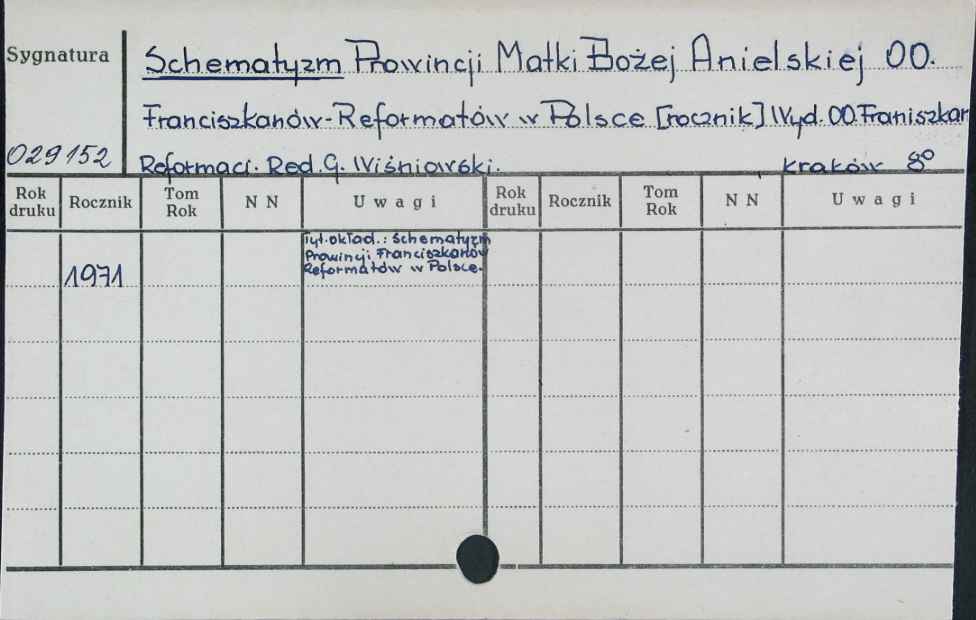 Sygnatura
Schematyzm Prowincji Matki Bożej Anielskiej OO.
Franciszkanów-Reformatów w Polsce [rocznik] Wyd. OO. Franiszkan
029152
Reformaci. Red. G. Wiśniowski. Kraków 8º
Rok druku Rocznik Tom Rok N N Uwagi Rok druku Rocznik Tom Rok N N Uwagi
1971
Tyt. okład.: Schematyzm
Prowincji Franciszkanów
Reformatów w Polsce.